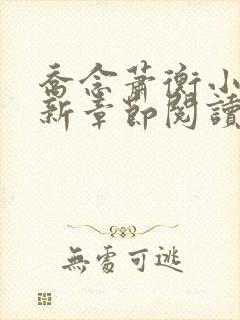 喬念蕭衡小
新章節閱讀
無處可逃